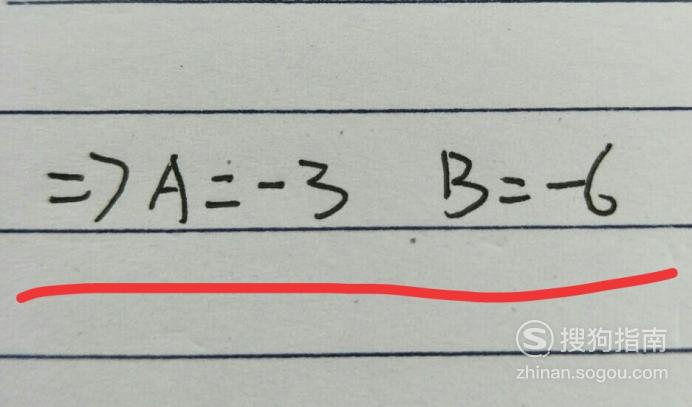 => A = -3 B = -6
S 搜狗指南
zhinan.sogou.com